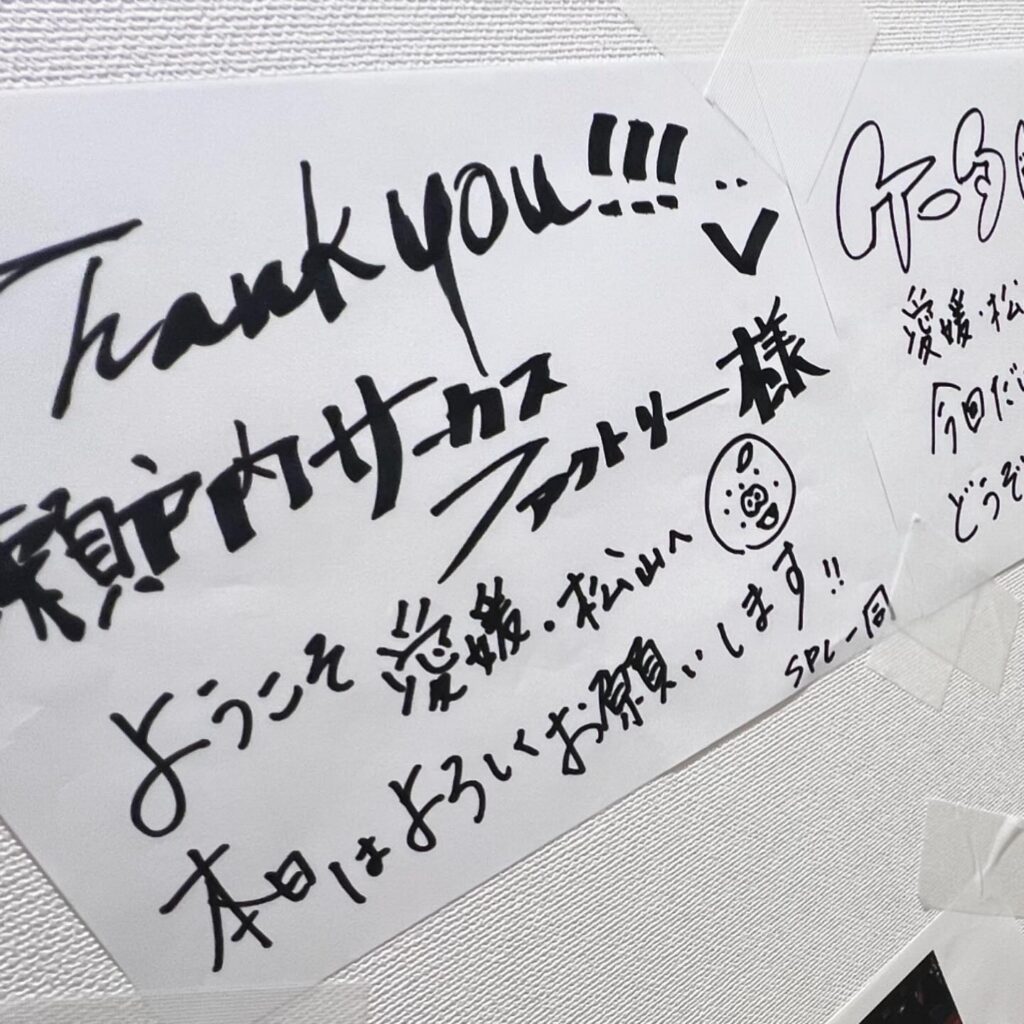 Thank you!!!
瀬戸内サーカス
ファクトリー様
ようこそ 愛媛・松山へ
本日はよろしくお願いします!!
SPC一同
ケータ
愛媛・松
今回だ
どうぞ